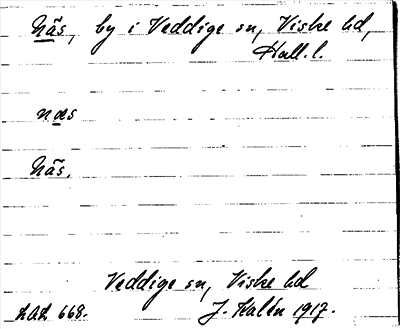 Näs, by i Veddige sn, Viske hd,
Hall. l.
næs
Näs.
Veddige sn, Viske hd
LAL 668. J. Kalén 1917.